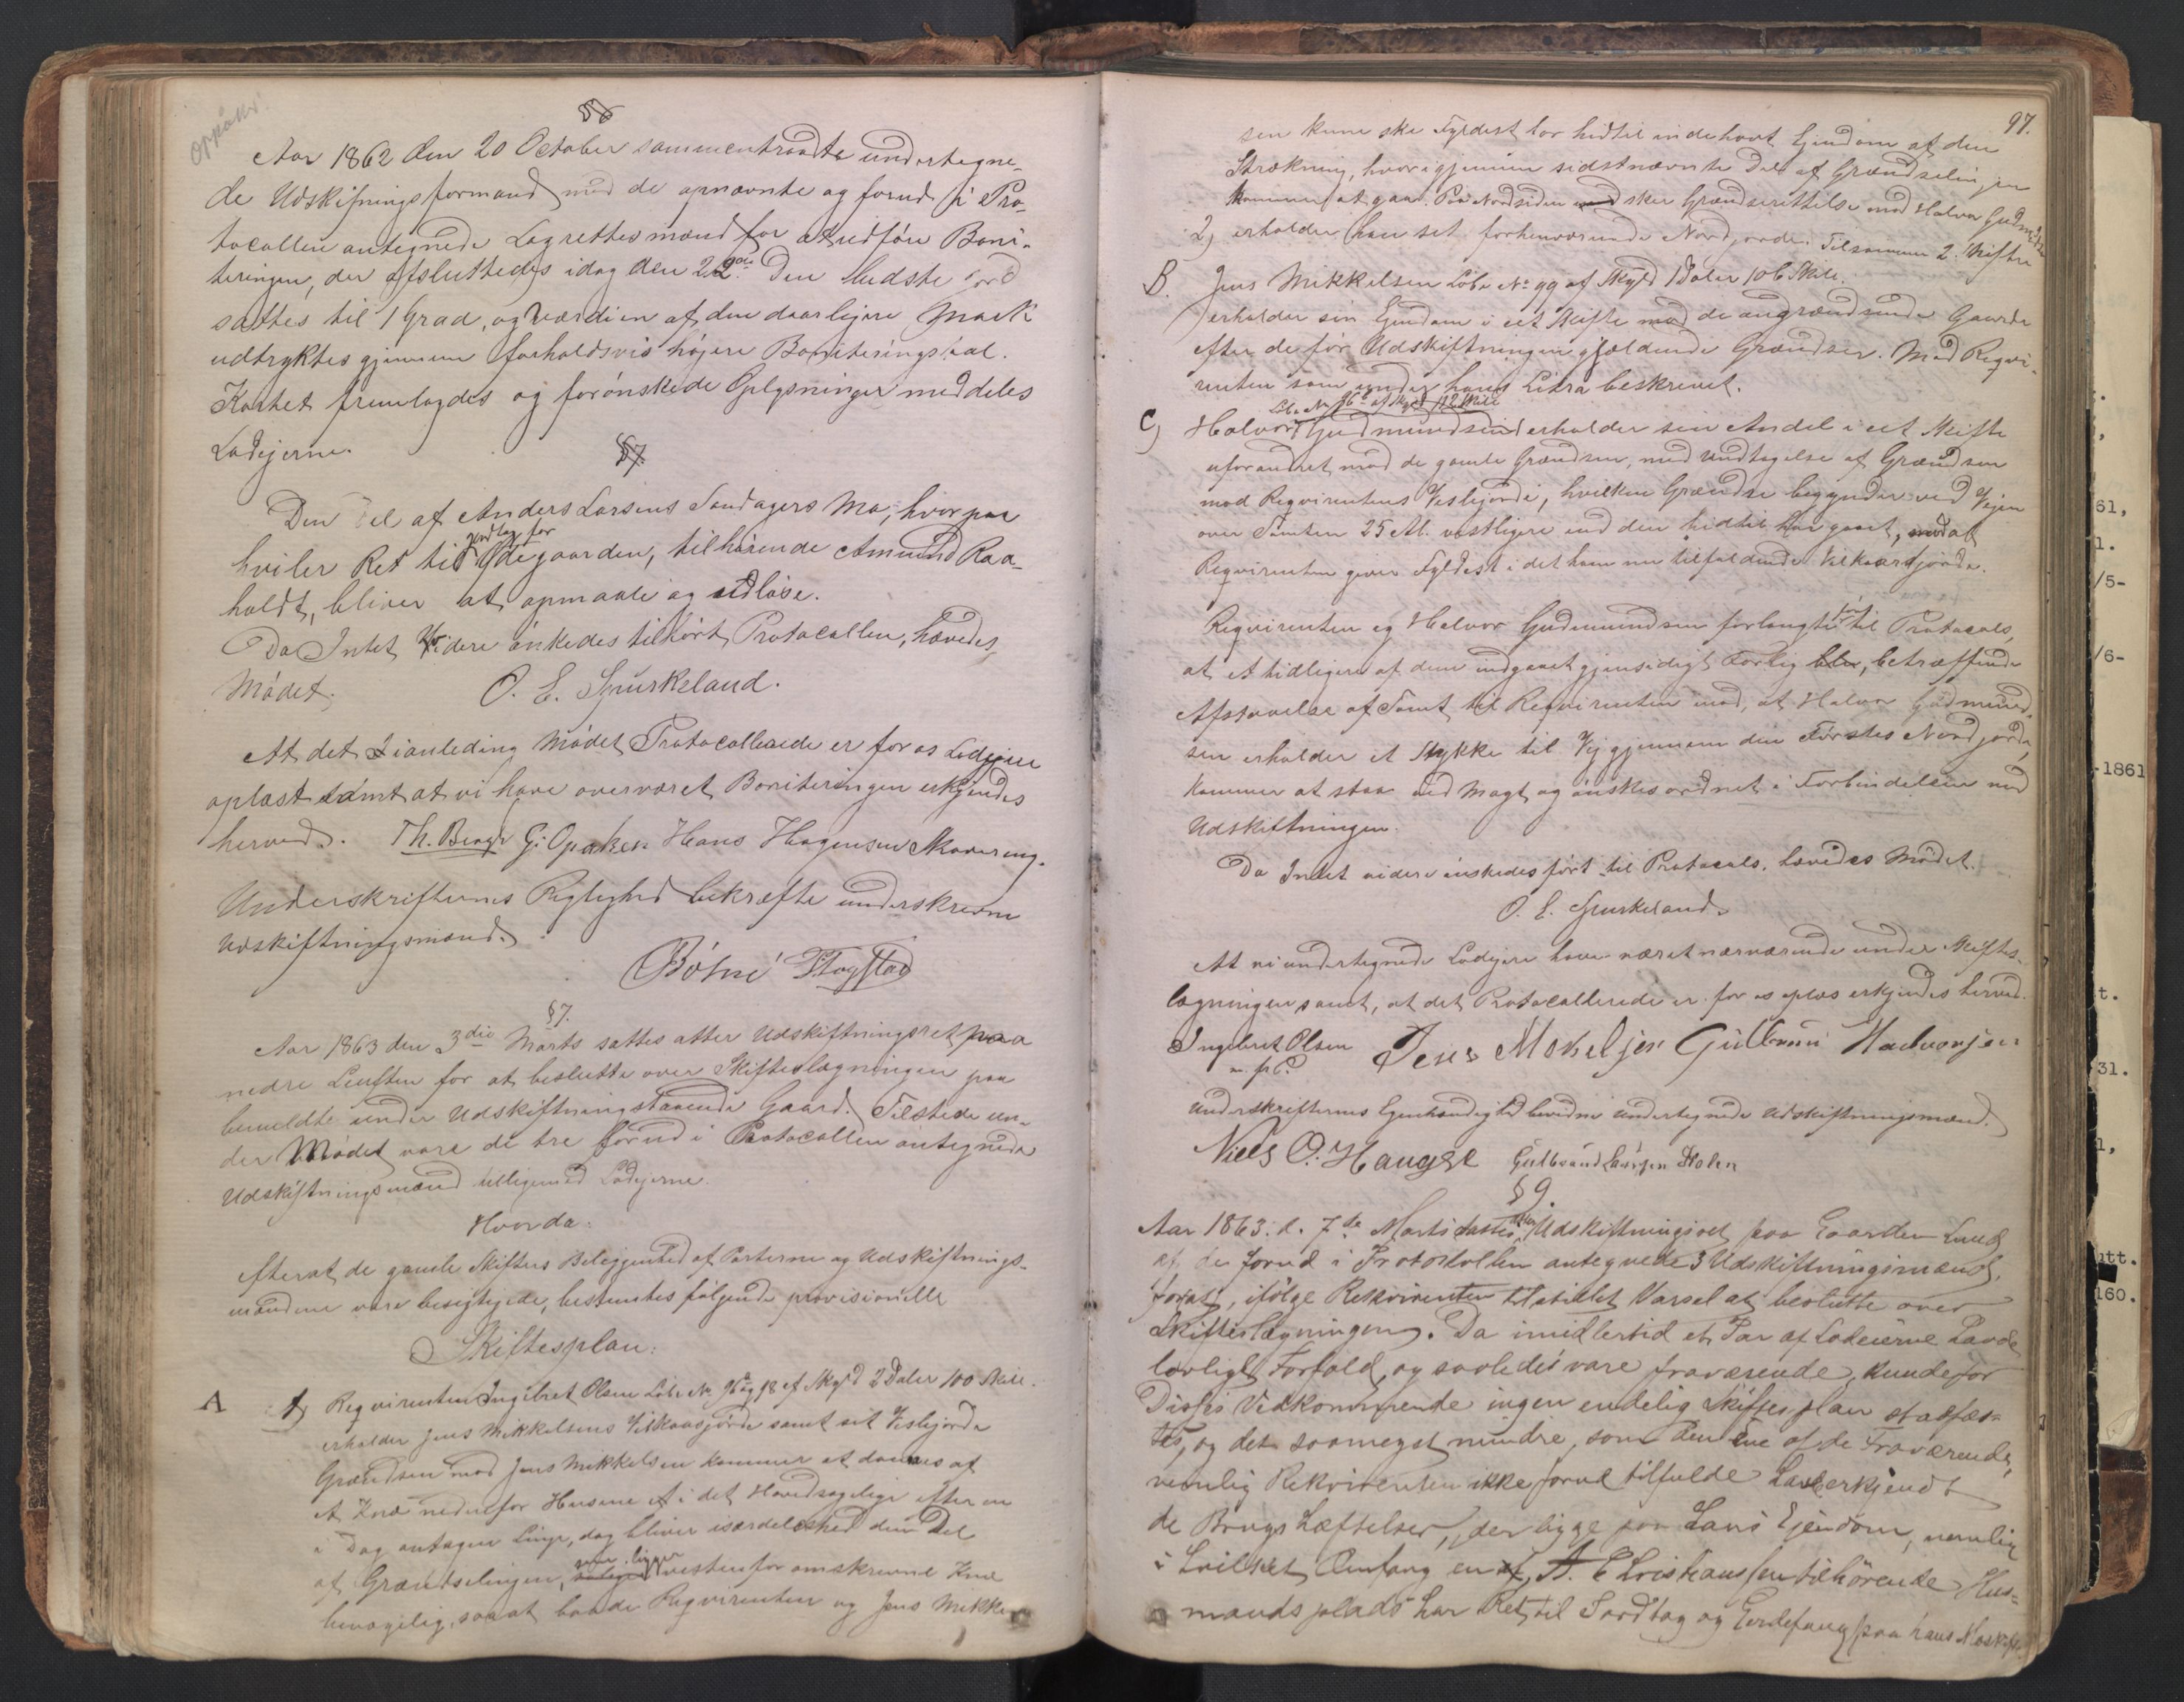 Oppåkr.
§6
Aar 1862 den 20 October sammentraadte undertegne-
de Udskifningsformand med de opnævnte og forud i Pro-
tocollen antegnede Lagrettesmænd for at udføre Boni-
teringen, der afsluttedes idag den 22de. Den bedste Jord
sattes til 1 Grad, og Værdien af den daarligere Mark
udtryktes gjennem forholdsvis højere Boniteringstal.
Kartet fremlagdes og forønskede Oplysninger meddeltes
Lodejerne.
§7.
Den Del af Anders Larsens Sandagers Mo, hvorpaa
hviler Ret til Jordtag for Ødegaarden, tilhørende Amund Raa-
holdt, bliver at opmaale og udløse.
Da Intet Videre ønskedes tilført Protocollen, hævedes
Mødet.
O. E. Spurkeland.
At det I ianleding Mødet Protocollerede er for os Lodejere
oplæst samt at vi have overværet Boniteringen erkjendes
herved. Th. Bergh G: Opaker Hans Hagensen Skovereng.
Underskrifternes Rigtighed bekræfte underskrevne
Udskiftningsmænd.
§7.
Aar 1863 den 3die Marts sattes atter Udskiftningsret paa
nedre Lensten for at beslutte over Skifteslægningen paa
bemeldte under Udskiftning staaende Gaard. Tilstede un-
der Mødet vare de tre forud i Protocollen antegnede
Udskiftningsmænd tilligemed Lodejerne.
Hvorda:
efterat de gamle Skifters Beliggenhed af Parterne og Udskiftnings-
mændene vare besigtigede, bestemtes følgende provisionelle
Skiftesplan:
A 1) Reqvirenten Ingebret Olsen Løbe No 96a og 98 af Skyld 2 Daler 100 Skill.
erholder Jens Mikkelsens Vilkaarsjorde samt sit Veslejorde
Grændsen mod Jens Mikkelsen kommer at dannes af
et Knæ nedenfor Husene et i det Hovedsagelige efter en
i Dag antagen Linje, dog bliver isærdeleshed den Del
af Grændselinjen, som ligger vestenfor omskrevne Knæ
bevægelig, saaat baade Reqvirenten og Jens Mikkel-
97.
sen kunne ske Fyldest for hidtil indehavt Ejendom af den
Strækning, hvorigjennem sidstnævnte Del af Grændselinjen
kommer at gaa. Paa Nordsiden sker Grændserettelse mod Halvor Gudmundsen
2) erholder han sit forhenværende Nordjorde. Tilsammen 2 Skifter
B. Jens Mikkelsen Løbe No 99 af Skyld 1 Daler 106 Skill.
erholder sin Ejendom i eet Skifte mod de angrændsende Gaarde
efter de før Udskiftningen gjældende Grændser. Mod Reqvi-
renten som under hans Litra beskrevet.
Løbe No 96b af Skyld 112 Skill
C) Halvor Gudmundsen erholder sin Andel i eet Skifte
uforandret mod de gamle Grændser, med Undtagelse af Grændsen
mod Reqvirentens Veslejorde, hvilken Grændse begynder ved Vejen
over Tomten 25 Al. vestligere end den hidtil har gaaet, modat
Reqvirenten giver Fyldest i det ham nu tilfaldende Vilkaarsjorde.
Reqvirenten og Halvor Gudmundsen forlangte ført til Protocols,
at et tidligere af dem indgaaet gjensidigt Forlig, betræffende
Afstaaelse af Tomt til Reqvirenten mod, at Halvor Gudmund-
sen erholder et Stykke til Vej gjennem den Førstes Nordjorde,
kommer at staa ved Magt og ønskes ordnet i Forbindelsen med
Udskiftningen.
Da Intet videre ønskedes ført til Protocols, hævedes Mødet.
O. E. Spurkeland.
At vi undertegnede Lodejere have været nærværende under Skiftes-
lægningen samt, at det Protocollerede er for os oplæs erkjendes herved.
Ingebret Olsen Jens Mekeljsen Gulbran Halvorsen
m. p. P.
Underskrifternes Egenhændighed bevidne undertegnede Udskiftningsmænd.
Niels O. Haugse Gulbrand Larsen Holen
§ 9.
Aar 1863. d. 7de Marts sattes atter Udskiftningsret paa Gaarden Lund
af de forud i Protokollen antegnede 3 Udskiftningsmænd,
forat, ifølge Rekvirenten tilstillet Varsel at beslutte over
Skifteslægningen. Da imidlertid et Par af Lodeierne havde
lovligt Forfald, og saaledes vare fraværende, kunde for
Disses Vidkommende ingen endelig Skiftesplan stadfæs-
tes, og det saameget mindre, som den Ene af de Fraværende,
nemlig Rekvirenten ikke forud tilfulde havde erkjendt
de Brugs Hæftelser, der ligge paa hans Ejendom, nemlig
i hvilket Omfang en A. Christiansen tilhørende Hus-
mandsplads har Ret til Jordtag og Gjerdefang paa hans
61,
1.
/5-
/6-
-1861
t.
31.
1,
utt.
160.